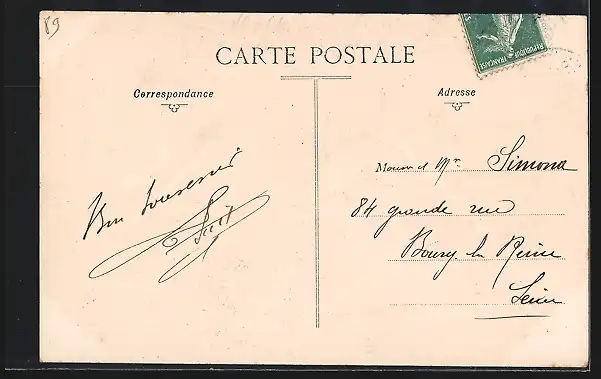 89
CARTE POSTALE
Correspondance
Adresse
REPUBLIQUE FRANÇAISE
Bon souvenir
M Simona
84 grande rue
Bourg la Reine
Seine